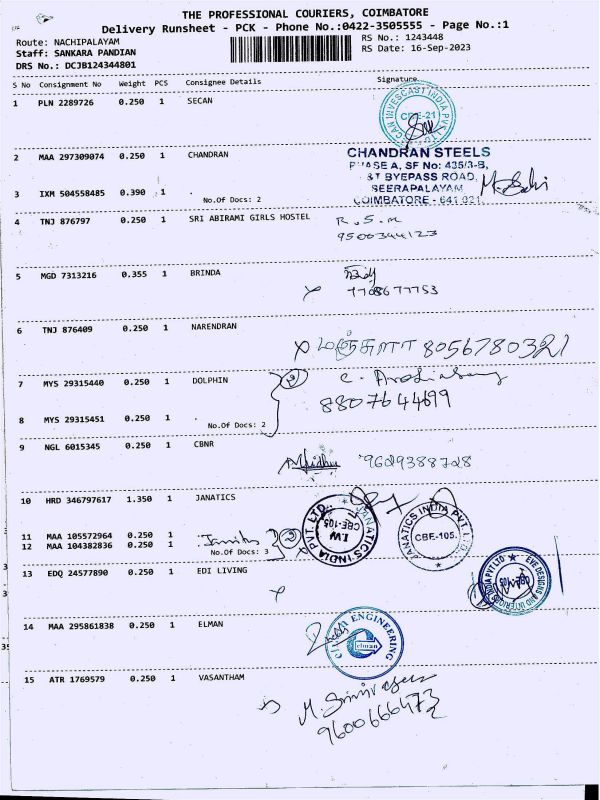 THE PROFESSIONAL COURIERS, COIMBATORE
Delivery Runsheet - PCK - Phone No.:0422-3505555 - Page No.:1
Route: NACHIPALAYAM
RS No.: 1243448
Staff: SANKARA PANDIAN
RS Date: 16-Sep-2023
DRS No.: DCJB124344801
S No Consignment No Weight PCS Consignee Details Signature
1 PLN 2289726 0.250 1 SECAN
CBE-21
2 MAA 297309074 0.250 1 CHANDRAN
CHANDRAN STEELS
PHASE A, SF No: 435/3-B,
&T BYEPASS ROAD,
SEERAPALAYAM,
COIMBATORE - 641 021.
3 IXM 504558485 0.390 1 .
No.Of Docs: 2
4 TNJ 876797 0.250 1 SRI ABIRAMI GIRLS HOSTEL
R.S.M
9500344123
5 MGD 7313216 0.355 1 BRINDA
6 TNJ 876409 0.250 1 NARENDRAN
8056780321
7 MYS 29315440 0.250 1 DOLPHIN
8807644699
8 MYS 29315451 0.250 1 .
No.Of Docs: 2
9 NGL 6015345 0.250 1 CBNR
9629388728
10 HRD 346797617 1.350 1 JANATICS
JANATICS INDIA PVT. LTD.
CBE-105.
11 MAA 105572964 0.250 1 .
12 MAA 104382836 0.250 1
No.Of Docs: 3
13 EDQ 24577890 0.250 1 EDI LIVING
EVE DESIGNS AND INTERIORS INDIA PVT LTD
14 MAA 295861838 0.250 1 ELMAN
ENGINEERING
elman
15 ATR 1769579 0.250 1 VASANTHAM
9600666473